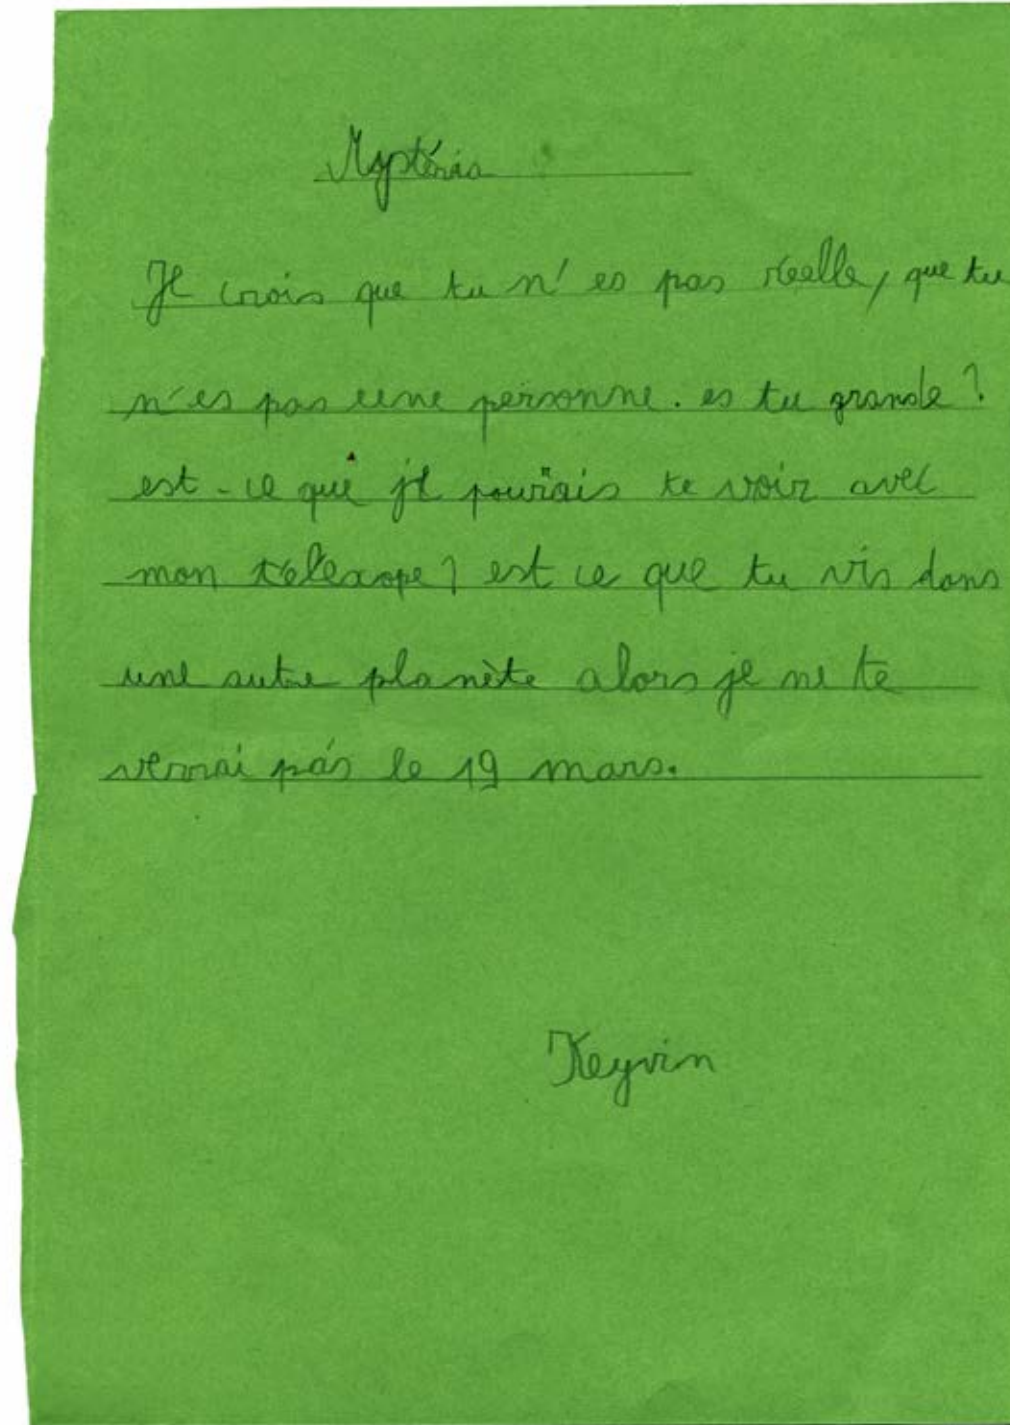 Mystéria
Je crois que tu n'es pas réelle, que tu
n'es pas une personne. es tu grande ?
est-ce que je pourrais te voir avec
mon télescope ? est ce que tu vis dans
une autre planète alors je ne te
verrai pas le 19 mars.
Keyvin